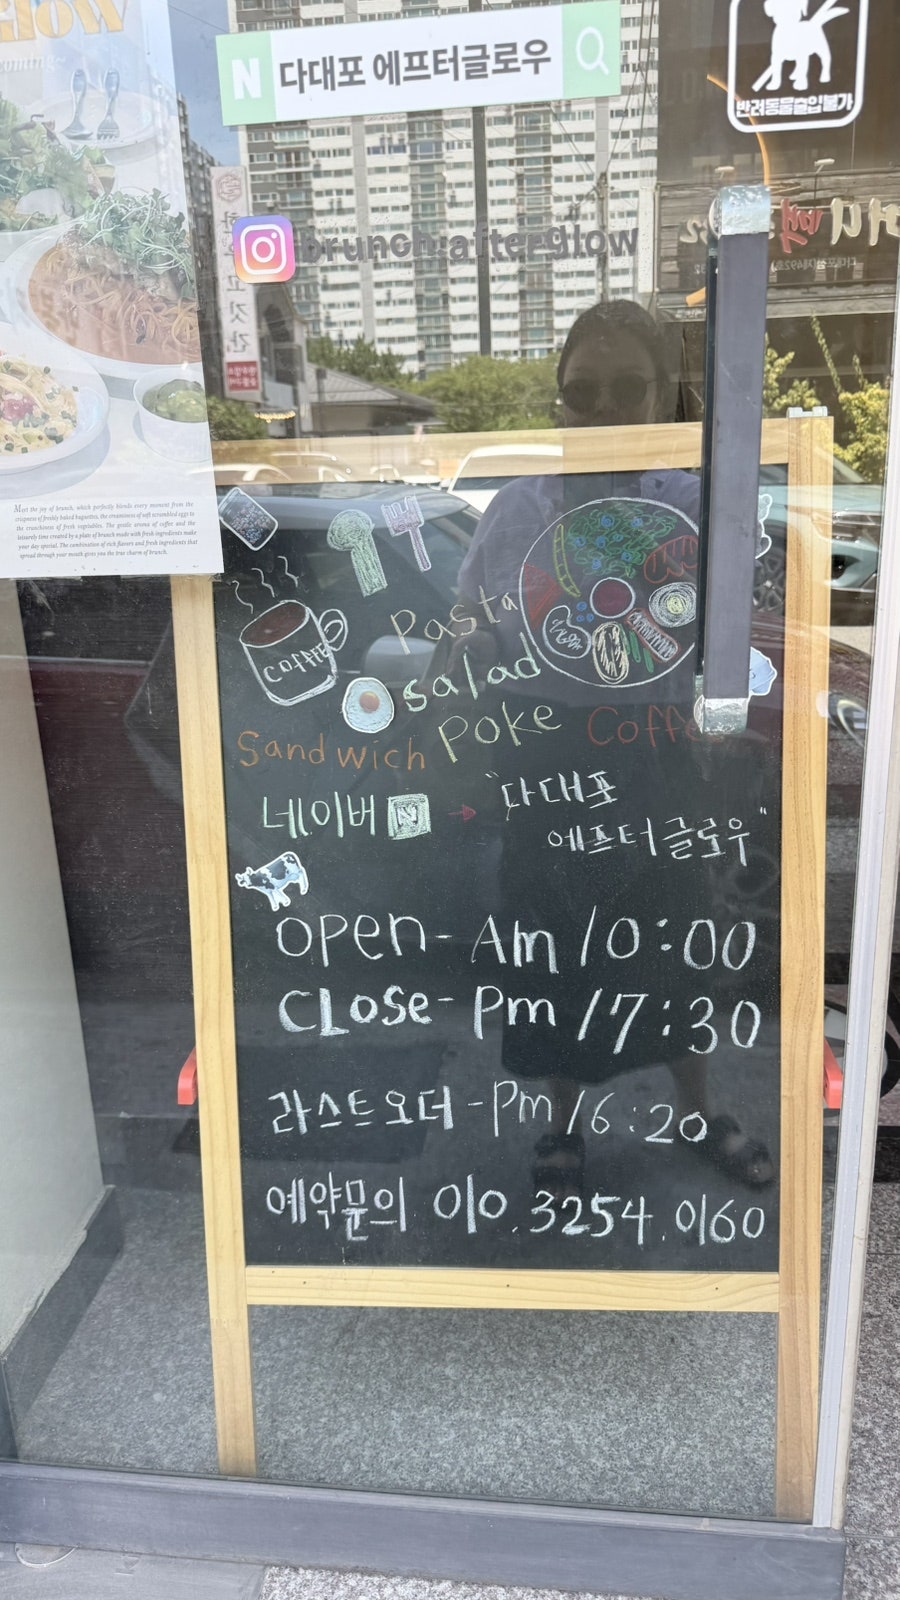 low
coming~
N 다대포 에프터글로우
반려동물출입불가
brunch.afterglow
Meet the joy of brunch, which perfectly blends every moment from the
crispness of freshly baked baguettes, the creaminess of soft scrambled eggs to
the crunchiness of fresh vegetables. The gentle aroma of coffee and the
leisurely time created by a plate of brunch made with fresh ingredients make
your day special. The combination of rich flavors and fresh ingredients that
spread through your mouth gives you the true charm of brunch.
Coffee
Pasta
salad
Sandwich POKE Coffee
네이버 N → "다대포
에프터글로우"
OPEn - Am 10:00
CLOSe - Pm 17:30
라스트오더 - Pm 16:20
예약문의 010.3254.0160